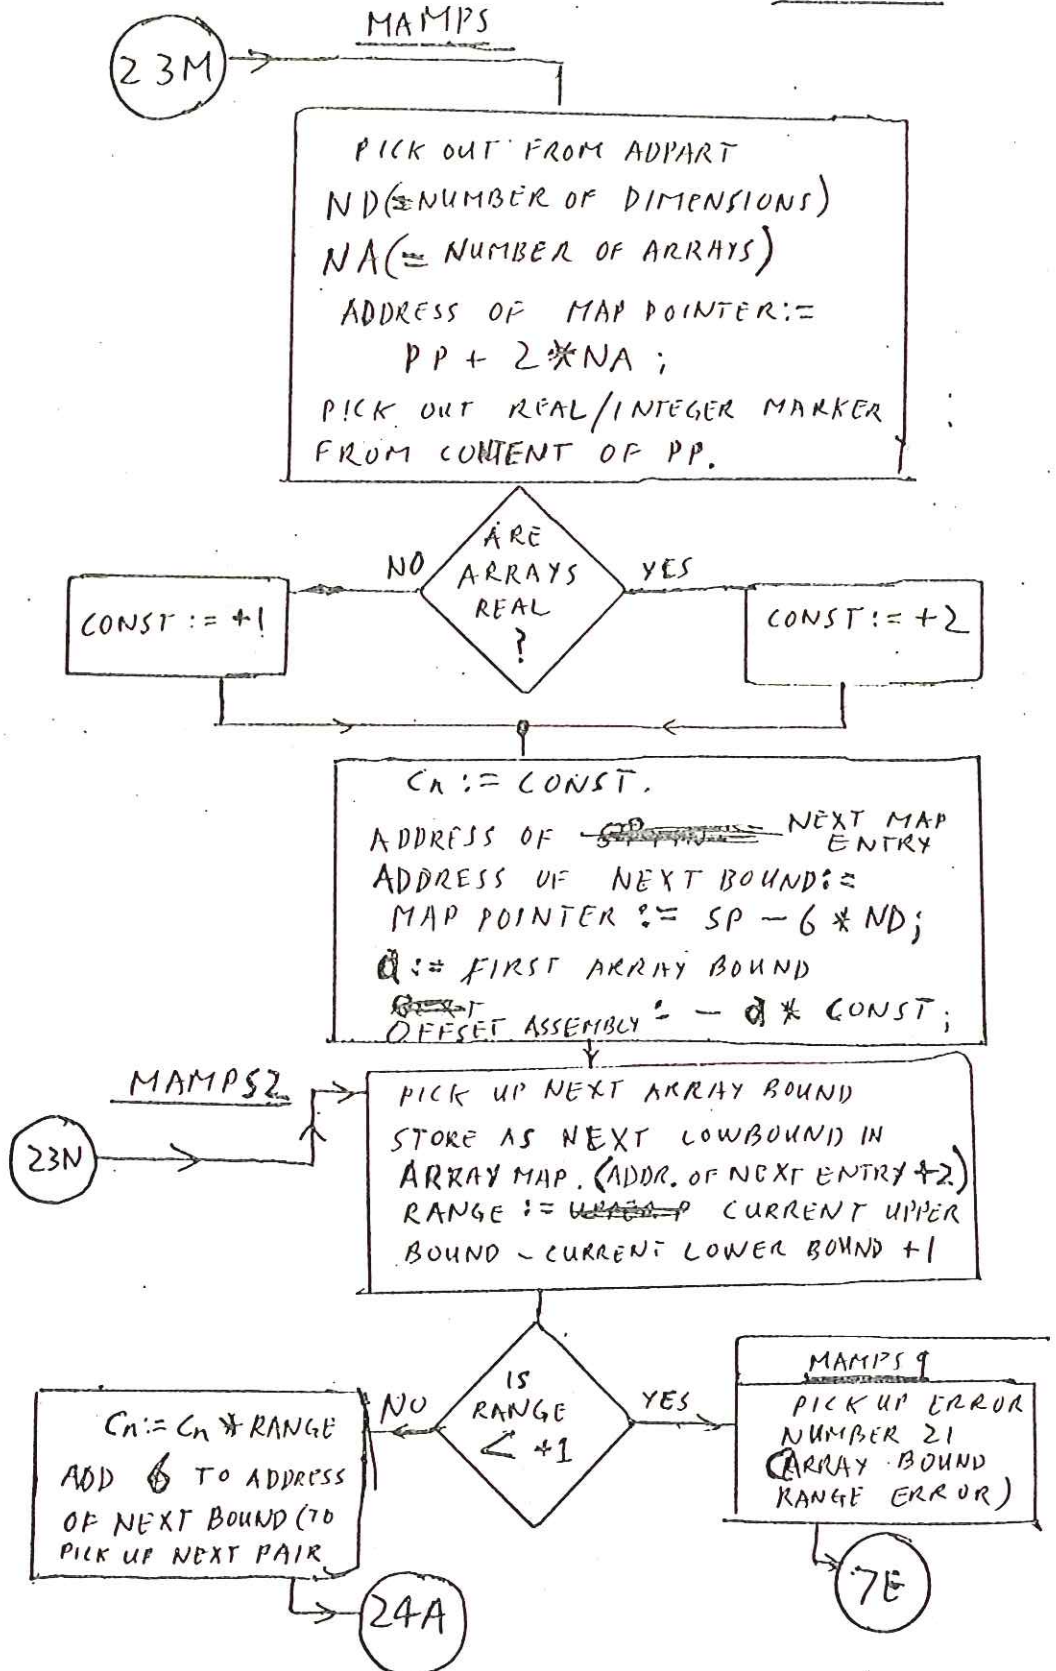 MAMPS
23M
PICK OUT FROM ADPART
ND(=NUMBER OF DIMENSIONS)
NA(= NUMBER OF ARRAYS)
ADDRESS OF MAP POINTER:=
PP + 2*NA ;
PICK OUT REAL/INTEGER MARKER
FROM CONTENT OF PP.
ARE
ARRAYS
REAL
?
NO
YES
CONST := +1
CONST := +2
Cn := CONST.
ADDRESS OF NEXT MAP
ENTRY
ADDRESS OF NEXT BOUND:=
MAP POINTER := SP - 6 * ND;
d := FIRST ARRAY BOUND
OFFSET ASSEMBLY := - d * CONST;
MAMPS2
23N
PICK UP NEXT ARRAY BOUND
STORE AS NEXT LOWBOUND IN
ARRAY MAP. (ADDR. OF NEXT ENTRY +2)
RANGE := CURRENT UPPER
BOUND - CURRENT LOWER BOUND +1
IS
RANGE
< +1
NO
YES
Cn := Cn * RANGE
ADD 6 TO ADDRESS
OF NEXT BOUND (TO
PICK UP NEXT PAIR
24A
MAMPS9
PICK UP ERROR
NUMBER 21
(ARRAY BOUND
RANGE ERROR)
7E